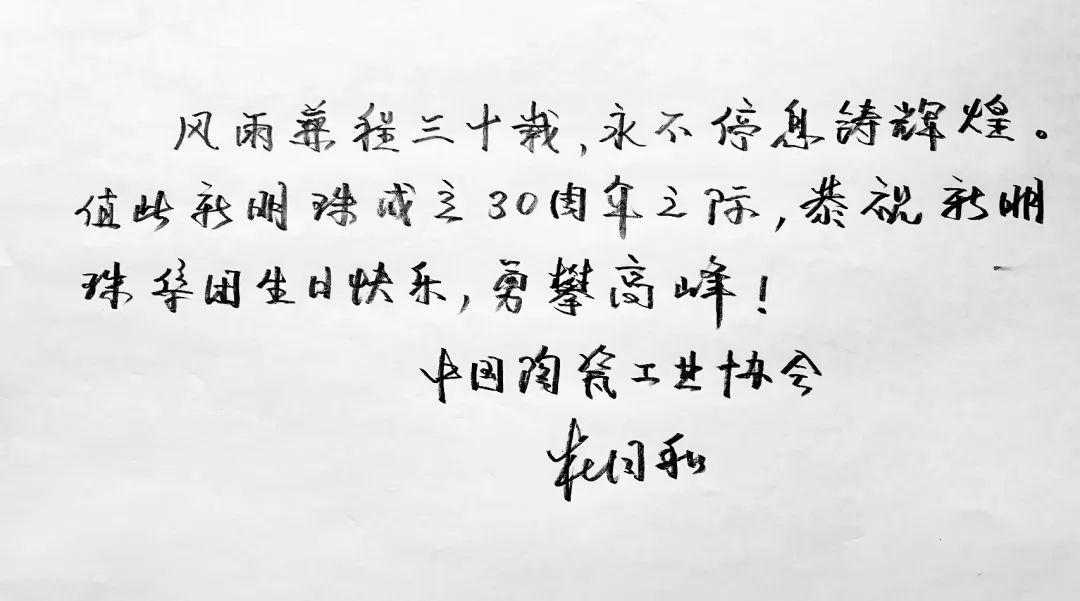 风雨兼程三十载,永不停息铸辉煌。
值此新明珠成立30周年之际,恭祝新明
珠集团生日快乐,勇攀高峰!
中国陶瓷工业协会
杜同和